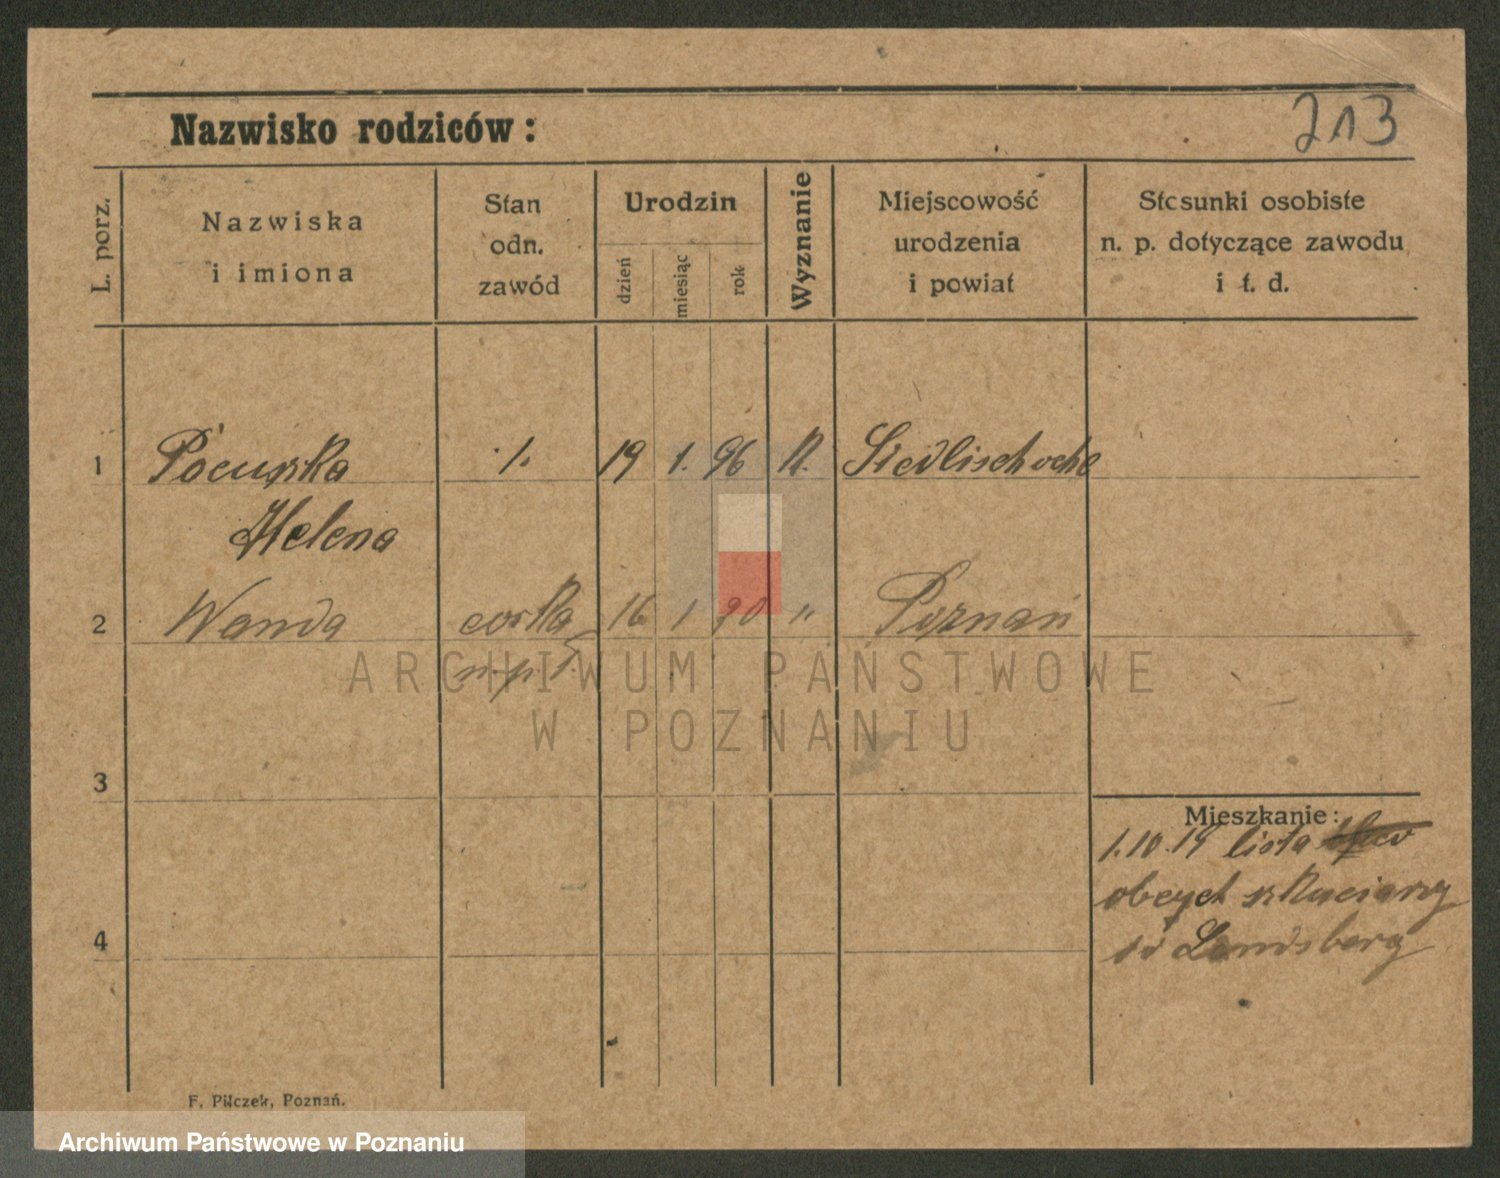 213
Nazwisko rodziców:
L. porz.
Nazwiska
i imiona
Stan
odn.
zawód
Urodzin
dzień
miesiąc
rok
Wyznanie
Miejscowość
urodzenia
i powiat
Stosunki osobiste
n. p. dotyczące zawodu
i t. d.
1 1. 19 1. 96 R.
Helena
2 Wanda corka 16 1 20 " Poznań
ARCHIWUM PAŃSTWOWE
W POZNANIU
3
Mieszkanie:
1.10.19 lista
obcych
4
w Landsberg
F. Pilczek, Poznań.
Archiwum Państwowe w Poznaniu